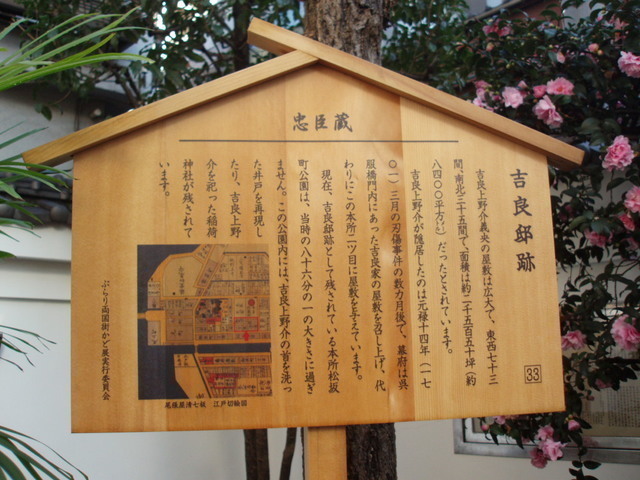 忠臣蔵
吉良邸跡
33
吉良上野介義央の屋敷は広大で、東西七十三
間、南北三十五間で、面積は約二千五百五十坪（約
八四〇〇平方㍍）だったとされています。
吉良上野介が隠居したのは元禄十四年（一七
〇一）三月の刃傷事件の数カ月後で、幕府は呉
服橋門内にあった吉良家の屋敷を召し上げ、代
わりにこの本所二ツ目に屋敷を与えています。
現在、吉良邸跡として残されている本所松坂
町公園は、当時の八十六分の一の大きさに過ぎ
ません。この公園内には、吉良上野介の首を洗っ
た井戸を再現し
たり、吉良上野
介を祀った稲荷
神社が残されて
います。
尾張屋清七板 江戸切絵図
ぶらり両国街かど展実行委員会